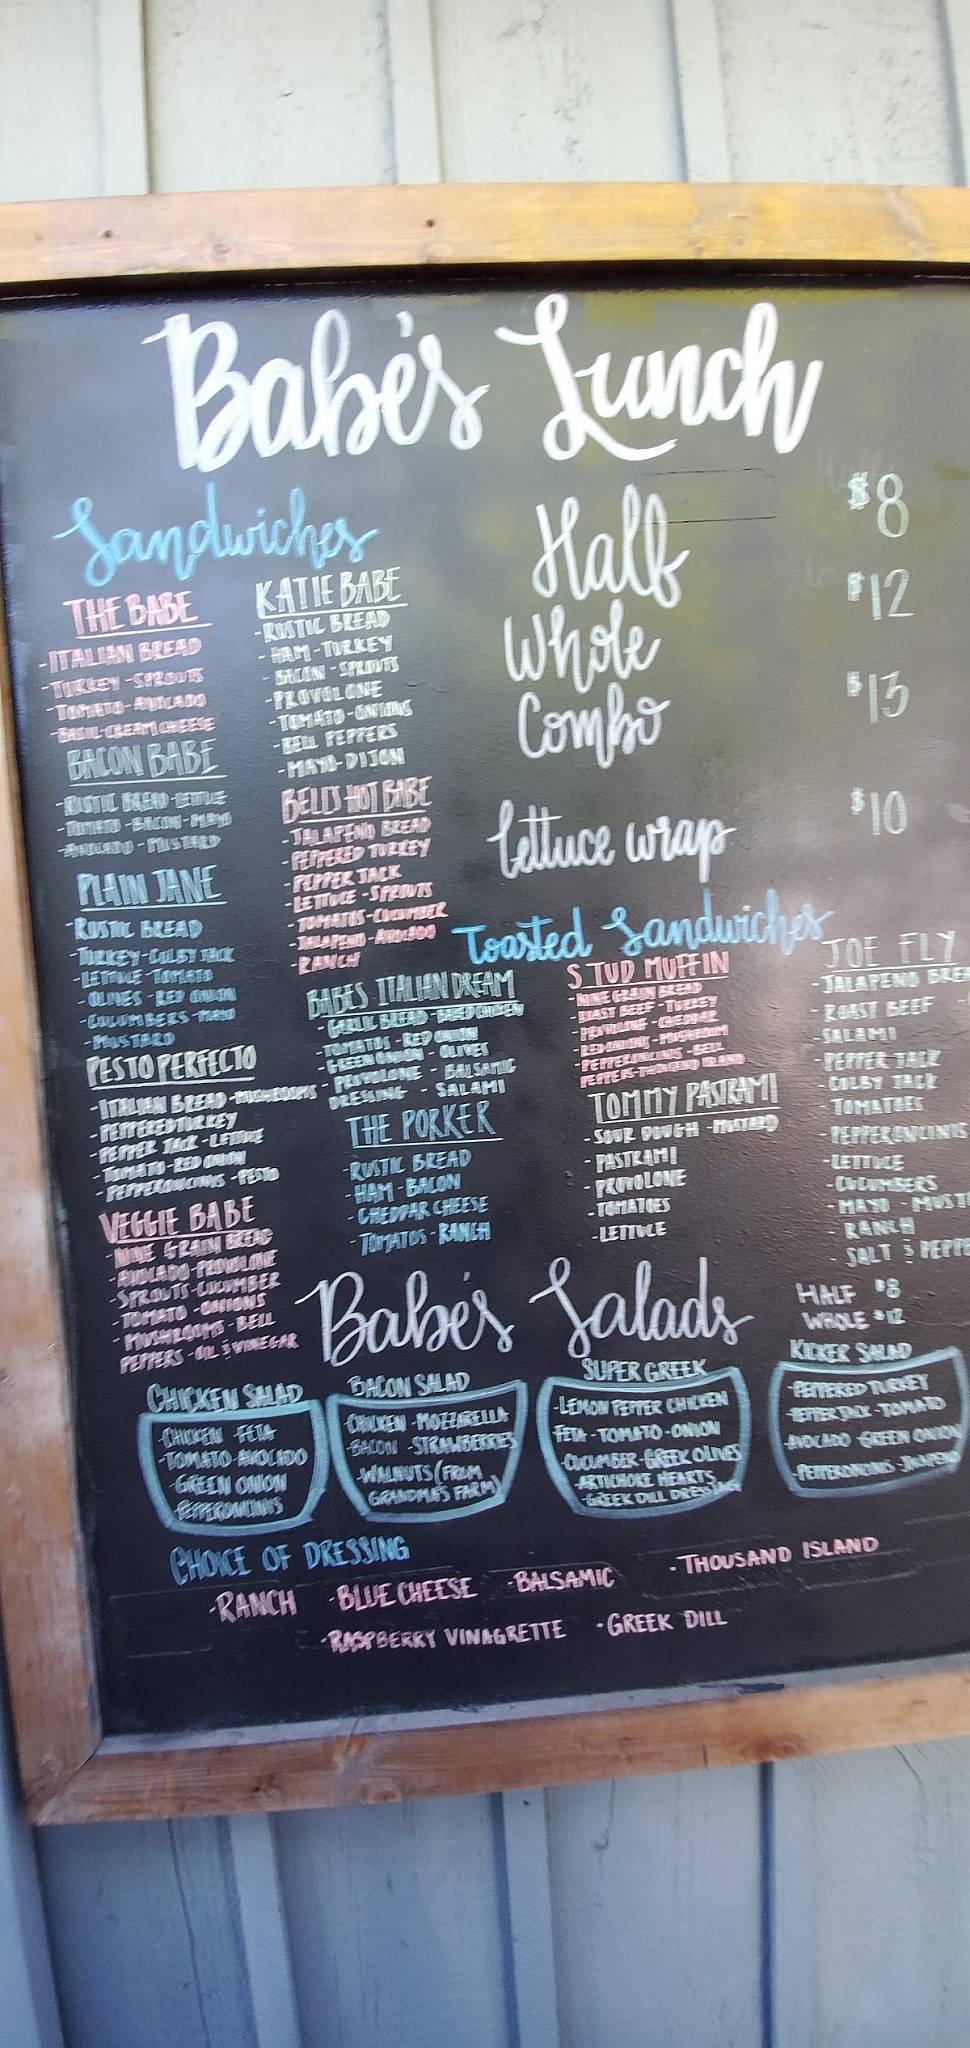 Babe's Lunch
Sandwiches
THE BABE
-ITALIAN BREAD
-TURKEY-SPROUTS
-TOMATO-AVOCADO
-BASIL CREAM CHEESE
BACON BABE
-RUSTIC BREAD-LETTUCE
-TOMATO-BACON-MAYO
-AVOCADO-MUSTARD
PLAIN JANE
-RUSTIC BREAD
-TURKEY-COLBY JACK
-LETTUCE-TOMATO
-OLIVES-RED ONION
-CUCUMBERS-MAYO
-MUSTARD
PESTO PERFECTO
-ITALIAN BREAD-MUSHROOMS
-PEPPERED TURKEY
-PEPPER JACK-LETTUCE
-TOMATO-RED ONION
-PEPPERONCINIS-PESTO
VEGGIE BABE
-NINE GRAIN BREAD
-AVOCADO-PROVOLONE
-SPROUTS-CUCUMBER
-TOMATO-ONIONS
-MUSHROOMS-BELL
PEPPERS-OIL & VINEGAR
KATIE BABE
-RUSTIC BREAD
-HAM-TURKEY
-BACON-SPROUTS
-PROVOLONE
-TOMATO-ONIONS
-BELL PEPPERS
-MAYO-DIJON
BELL'S HOT BABE
-JALAPENO BREAD
-PEPPERED TURKEY
-PEPPER JACK
-LETTUCE-SPROUTS
-TOMATOS-CUCUMBER
-JALAPENO-AVOCADO
-RANCH
Half $8
Whole $12
Combo $13
Lettuce wrap $10
Toasted Sandwiches
BABES ITALIAN DREAM
-GARLIC BREAD-BAKED CHICKEN
-TOMATOS-RED ONION
-GREEN ONION-OLIVES
-PROVOLONE-BALSAMIC
DRESSING-SALAMI
THE PORKER
-RUSTIC BREAD
-HAM-BACON
-CHEDDAR CHEESE
-TOMATOS-RANCH
STUD MUFFIN
-NINE GRAIN BREAD
-ROAST BEEF-TURKEY
-PROVOLONE-CHEDDAR
-RED ONION-MUSHROOM
-PEPPERONCINIS-BELL
PEPPERS-THOUSAND ISLAND
TOMMY PASTRAMI
-SOUR DOUGH-MUSTARD
-PASTRAMI
-PROVOLONE
-TOMATOES
-LETTUCE
JOE FLY
-JALAPENO BREA
-ROAST BEEF
-SALAMI
-PEPPER JACK
-COLBY JACK
-TOMATOES
-PEPPERONCINIS
-LETTUCE
-CUCUMBERS
-MAYO-MUST
-RANCH
SALT & PEPPE
Babe's Salads
HALF $8
WHOLE $12
CHICKEN SALAD
-CHICKEN-FETA
-TOMATO-AVOCADO
-GREEN ONION
-PEPPERONCINIS
BACON SALAD
-CHICKEN-MOZZARELLA
-BACON-STRAWBERRIES
-WALNUTS (FROM
GRANDMA'S FARM)
SUPER GREEK
-LEMON PEPPER CHICKEN
FETA-TOMATO-ONION
-CUCUMBER-GREEK OLIVES
-ARTICHOKE HEARTS
-GREEK DILL DRESSING
KICKER SALAD
-PEPPERED TURKEY
-PEPPERJACK-TOMATO
-AVOCADO-GREEN ONION
-PEPPERONCINIS-JALAPENO
CHOICE OF DRESSING
-RANCH -BLUE CHEESE -BALSAMIC -THOUSAND ISLAND
-RASPBERRY VINAGRETTE -GREEK DILL